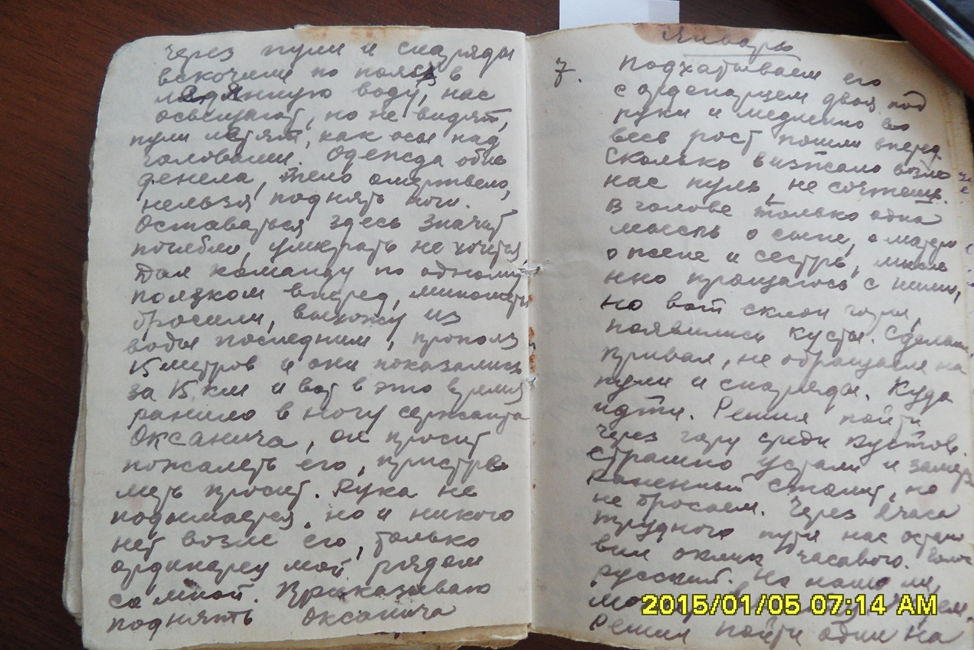 через пули и снаряды
вскочили по пояс в
ледянную воду, нас
освещают, но не видят,
пули летят, как осы над
головами. Одежда обле
денела, тело омертвело,
нельзя поднять ноги.
Оставаться здесь значит
погибли, умирать не хочется
Дал команду по одному
ползком вперед, минометы
бросили, выхожу из
воды последним, прополз
15 метров и они показались
за 15 км и вот в это время
ранило в ногу сержанта
Оксанича, он просит
пожалеть его, пристре
лить просит. Рука не
подымается, но и никого
нет возле его, только
ординарец мой рядом
со мной. Приказываю
поднять Оксанича
Январь
7. Подхатываем его
с ординарцем двоя под
руки и медленно во
весь рост пошли вперед.
Сколько визжало возле
нас пуль, не сочтешь.
В голове только одна
мысль о сыне, о матери
о жене и сестре, мысле
нно прощаюсь с ними,
но вот склон горы,
появились кусты. Сделали
привал, не обращая на
пули и снаряды. Куда
идти. Решил пойти
через гору среди кустов.
Страшно устали и замер
Раненный стонит, но
не бросаем. Через 2 часа
трудного пути нас остано
вил оклик часового.
русский. На наше ли
Решил пойти один на
2015/01/05 07:14 AM